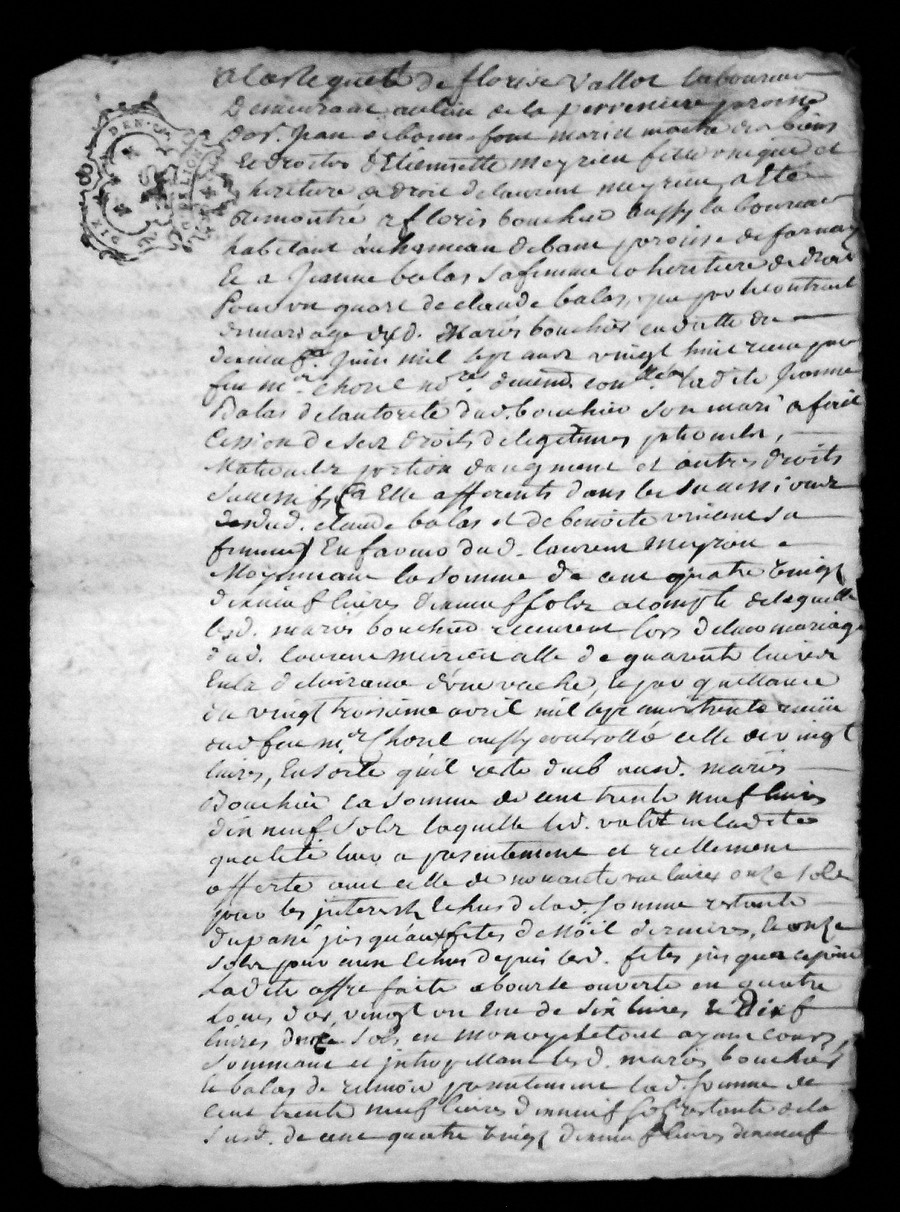 a la requete de florise vallot laboureur
Demeurant au lieu de la perveniere paroisse
de St. Jean de bonnefont marid maitre des biens
Et droits d'Etiennette meyrieu fille unique et
heritiere de droit de laurent meyrieu, a Ete
Remontré a floris bouchier aussy laboureur
habitant au hameau de banc paroisse de farnay
Et a Jeanne balas sa femme coheritiere de droit
Pour un quart de claude balas, que par le contract
de mariage desd. Mariés bouchier en datte du
Juin mil sept cent vingt huit receu par
feu me. Chorel nore. lad. ite Jeanne
Balas de lautorité dud. bouchier son mari a fait
Cession de ses droits de legitimes paternels,
Maternels portion daugment et autres droits
Successifs a Elle afferents dans les successions
dud. claude balas et de benoite vincent sa
femme, En faveur dud. laurent Meyrieu
Moyennant la somme de cent quatre vingt
dixneuf livres dixneuf sols a compte de laquelle
lesd. mariés bouchier receurent lors de leur mariage
dud. laurent meirieu celle de quarente livres
Et la delivrance d'une vache, Et par quittance
du vingt troisieme avril mil sept cent trente receüe
dud. feu me. Chorel aussy controllé celle de vingt
livres, En sorte qu'il reste deub ausd. mariés
Bouchier la somme de cent trente neuf livres
dix neuf sols laquelle led. valot en ladite
qualité leur a presentement et reellement
offerte avec celle de nonante une livres onze sols
pour les interests Echus de lad. somme restante
du passé jusqu'aux fetes de Nöel dernieres, Et onze
sols pour ceux Echus depuis lesd. fetes jusques a ce jour
Ladite offre faite a bourse ouverte en quatre
Louis d'or, vingt un Ecu de six livres Et Dix
livres sols en monoye le tout ayant cours,
Sommant et interpellant lesd. mariés bouchier
Et balas de recevoir presentement lad. somme de
Cent trente neuf livres dixneuf sols restante de la
Susd. de cent quatre vingt dixneuf livres dixneuf